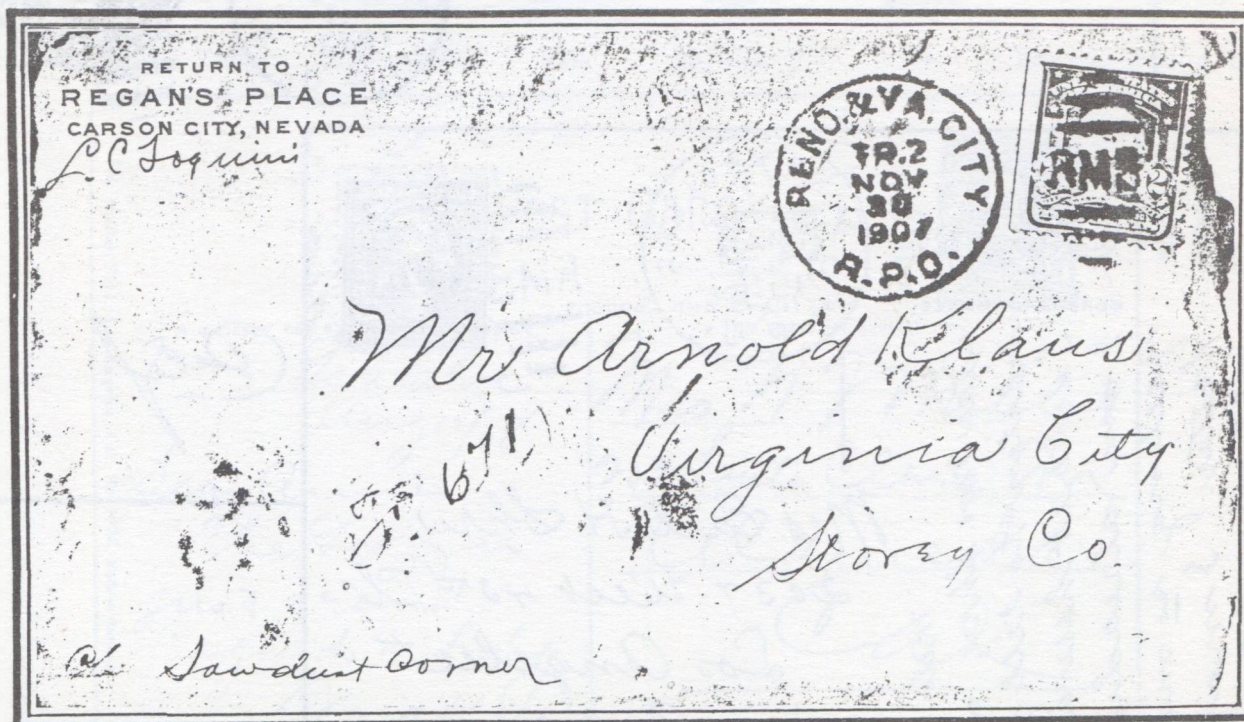 RETURN TO
REGAN'S PLACE
CARSON CITY, NEVADA
L C
RENO. & VA. CITY
TR. 2
NOV
30
1907
R.P.O.
RMS
2
Mr. Arnold Klaus
Virginia City
Storey Co.
c/ Sawdust Corner